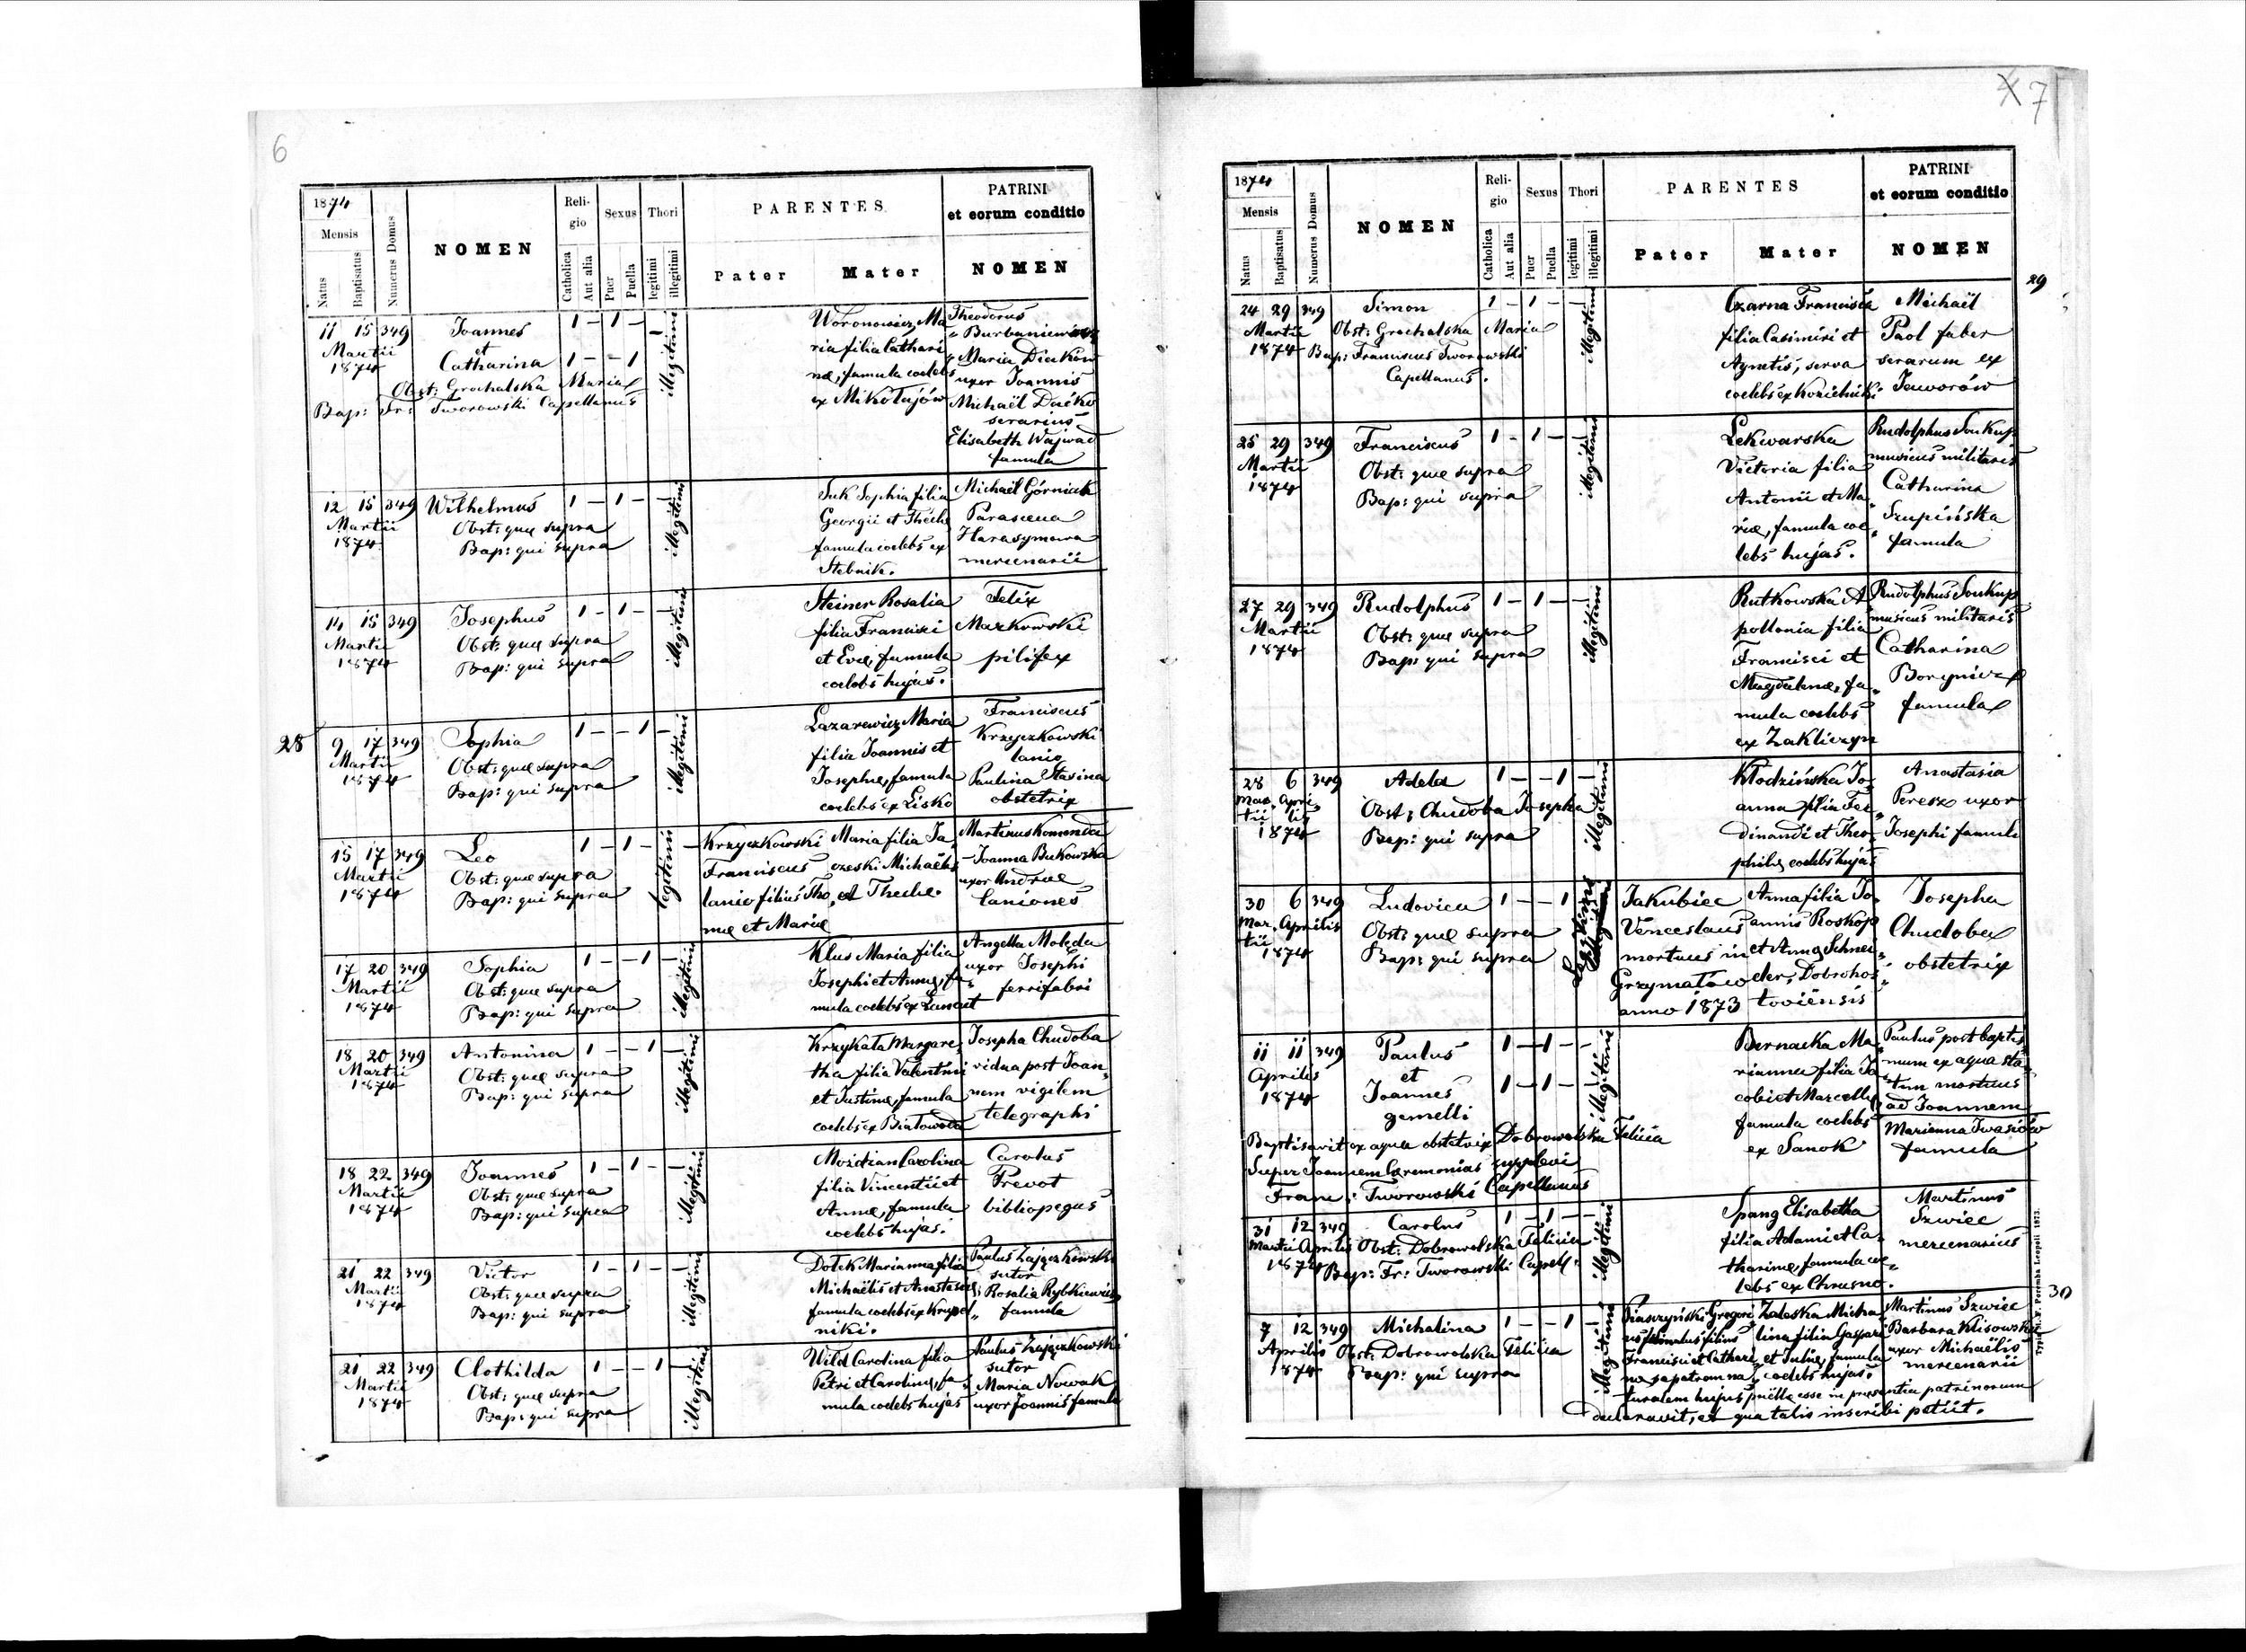 6
1874
Mensis
Natus
Baptisatus
Numerus Domus
NOMEN
Reli-
gio
Catholica
Aut alia
Sexus
Puer
Puella
Thori
legitimi
illegitimi
PARENTES
Pater
Mater
PATRINI
et eorum conditio
NOMEN
11 15 349 Joannes 1 – 1 – – illegitimi
Martii et
1874 Catharina 1 – – 1
Obst: Grochalska Maria
Bap: Fr: Tworowski Capellanus
Woronowicz Ma
ria filia Cathari
nae, famula coelebs
ex Mikołajów
Theodorus
Burbaniewicz
Maria Diaków
uxor Joannis
Michaël Daćko
serarius
Elisabeth Wajwad
famula
12 15 349 Wilhelmus 1 – 1 – – illegitimi
Martii Obst: quae supra
1874 Bap: qui supra
Suk Sophia filia
Georgii et Theclae
famula coelebs ex
Stebnik.
Michaël Górniak
Parascena
Harasymowa
mercenarii
14 15 349 Josephus 1 – 1 – – illegitimi
Martii Obst: quae supra
1874 Bap: qui supra
Steiner Rosalia
filia Francisci
et Evae, famula
coelebs hujas.
Felix
Markowski
pilifex
28
9 17 349 Sophia 1 – – 1 – illegitimi
Martii Obst: quae supra
1874 Bap: qui supra
Lazarewicz Maria
filia Joannis et
Josephae, famula
coelebs ex Lisko
Franciscus
Krzyczkowski
lanio
Paulina Stasina
obstetrix
15 17 349 Leo 1 – 1 – legitimi –
Martii Obst: quae supra
1874 Bap: qui supra
Krzyczkowski
Franciscus
lanio filius Tho
mae et Mariae
Maria filia Ja
czeski Michaëlis
et Theclae.
Martinus Kommda
Joanna Bukowska
uxor Andreae
laniones
17 20 349 Sophia 1 – – 1 – illegitimi
Martii Obst: quae supra
1874 Bap: qui supra
Klus Maria filia
Josephi et Annae, fa
mula coelebs ex Łancut
Angella Moleda
uxor Josephi
ferrifabri
18 20 349 Antonina 1 – – 1 – illegitimi
Martii Obst: quae supra
1874 Bap: qui supra
Krzykała Margare
tha filia Valentini
et Justinae, famula
coelebs ex Białowoda
Josepha Chudoba
vidua post Joan
nem vigilem
telegraphi
18 22 349 Joannes 1 – 1 – – illegitimi
Martii Obst: quae supra
1874 Bap: qui supra
Moździan Carolina
filia Vincentii et
Annae, famula
coelebs hujas.
Carolus
Prevot
bibliopegus
21 22 349 Victor 1 – 1 – – illegitimi
Martii Obst: quae supra
1874 Bap: qui supra
Dołek Marianna filia
Michaëlis et Anastasiae
famula coelebs ex Krupel
niki.
Paulus Zajączkowski
sutor
Rosalia Rybkiewicz
famula
21 22 349 Clothilda 1 – – 1 – illegitimi
Martii Obst: quae supra
1874 Bap: qui supra
Wild Carolina filia
Petri et Carolinae, fa
mula coelebs hujas
Paulus Zajączkowski
sutor
Maria Nowak
uxor Joannis famula
7
1874
Mensis
Natus
Baptisatus
Numerus Domus
NOMEN
Reli-
gio
Catholica
Aut alia
Sexus
Puer
Puella
Thori
legitimi
illegitimi
PARENTES
Pater
Mater
PATRINI
et eorum conditio
NOMEN
29
24 29 349 Simon 1 – 1 – – illegitimi
Martii Obst: Grochalska Maria
1874 Bap: Franciscus Tworowski
Capellanus.
Czarna Francisca
filia Casimiri et
Agnetis, serva
coelebs ex Kozielniki
Michaël
Paol faber
serarum ex
Jaworów
25 29 349 Franciscus 1 – 1 – – illegitimi
Martii Obst: quae supra
1874 Bap: qui supra
Lekwarska
Victoria filia
Antonii et Ma
riae, famula coe
lebs hujas.
Rudolphus Soukup
musicus militaris
Catharina
Szupińska
famula
27 29 349 Rudolphus 1 – 1 – – illegitimi
Martii Obst: quae supra
1874 Bap: qui supra
Rutkowska A
pollonia filia
Francisci et
Magdalenae, fa
mula coelebs
ex Zakliczyn
Rudolphus Soukup
musicus militaris
Catharina
Borynicz
famula
28 6 349 Adela 1 – – 1 – illegitimi
Mar Apri
tii lis Obst: Chudoba Josepha
1874 Bap: qui supra
Kłodzińska Jo
anna filia Fer
dinandi et Theo
philae, coelebs hujas
Anastasia
Peresz uxor
Josephi famuli
30 6 349 Ludovica 1 – – 1 Legitimi
Mar Aprilis Obst: quae supra
tii
1874 Bap: qui supra
Jakubiec
Venceslaus
mortuus in
Grzymałów
anno 1873
Anna filia Jo
annis Roskop
et Anna Schnei
der, Dobroho
toviensis
Josepha
Chudoba
obstetrix
11 11 349 Paulus 1 – 1 – – illegitimi
Aprilis et
1874 Joannes 1 – 1 –
gemelli
Baptisavit ex aqua obstetrix Dobrowolska Felicia
Super Joannem Ceremonias supplevi
Franc: Tworowski Capellanus
Bernacka Ma
rianna filia Ja
cobi et Marcellae
famula coelebs
ex Sanok
Paulus post baptis
mum ex aqua sta
tim mortuus
ad Joannem
Marianna Iwasiów
famula
31 12 349 Carolus 1 – 1 – – illegitimi
Martii Aprilis Obst: Dobrowolska Felicia
1874 Bap: Fr: Tworowski Capell:
Spang Elisabetha
filia Adami et Ca
tharinae, famula coe
lebs ex Chrusno.
Martinus
Szwiec
mercenarius
30
7 12 349 Michalina 1 – – 1 – illegitimi
Aprilis Obst: Dobrowolska Felicia
1874 Bap: qui supra
Piaszczyński Gregori
us famulus filius
Francisci et Cathari
nae se patrem na
turalem hujus puellae esse in praesentia patrinorum
declaravit, et qua talis inscribi petiit.
Zaleska Micha
lina filia Gaspari
et Juliae, famula
coelebs hujas.
Martinus Szwiec
Barbara Klisowska
uxor Michaëlis
mercenarii
Typis A. V. Poremba Leopoli 1873.